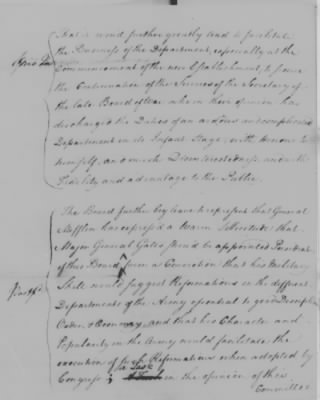 that it would further greatly tend to facilitate
the Business of the Department, especially at the
Commencement of the new Establishment, to secure
the Continuation of the Services of the Secretary of
the late Board of War who in their opinion has
discharged the Duties of an arduous and complicated
Department in its Infant Stage, with Honour to
himself, and much Disinterestedness, and with
Fidelity and advantage to the Public.
The Board further beg leave to represent that General
Mifflin has express'd a warm Sollicitude that
Major General Gates should be appointed President
of this Board, from a Conviction that his Military
Skill would suggest Reformations in the different
Departments of the Army essential to good Discipline
Order & Œconomy, and that his Character and
Popularity in the Army would facilitate the
execution of such Reformations when adopted by
Congress; a Task
in the opinion of this
Committee